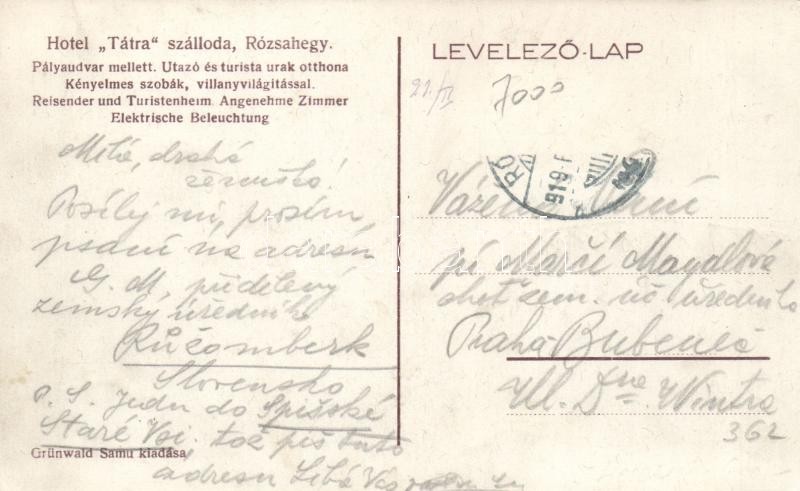 Hotel „Tátra“ szálloda, Rózsahegy.
Pályaudvar mellett. Utazó és turista urak otthona
Kényelmes szobák, villanyvilágitással.
Reisender und Turistenheim. Angenehme Zimmer
Elektrische Beleuchtung
Milá, drahá
Posílej mi, prosím,
psaní na adresu
G. M. přidělený
zemský úředník
Růžomberk
Slovensko
P. S. Jedu do Spišské
Staré Vsi. tož piš tuto
adresu Líbá Vás
Grünwald Samu kiadása
LEVELEZŐ-LAP
21./II
7000
RÓ
919
Vážená paní
pí Marčí Maydlová
choť zem. úč. úředníka
Praha Bubeneč
Ul. Dra. Wintra
362